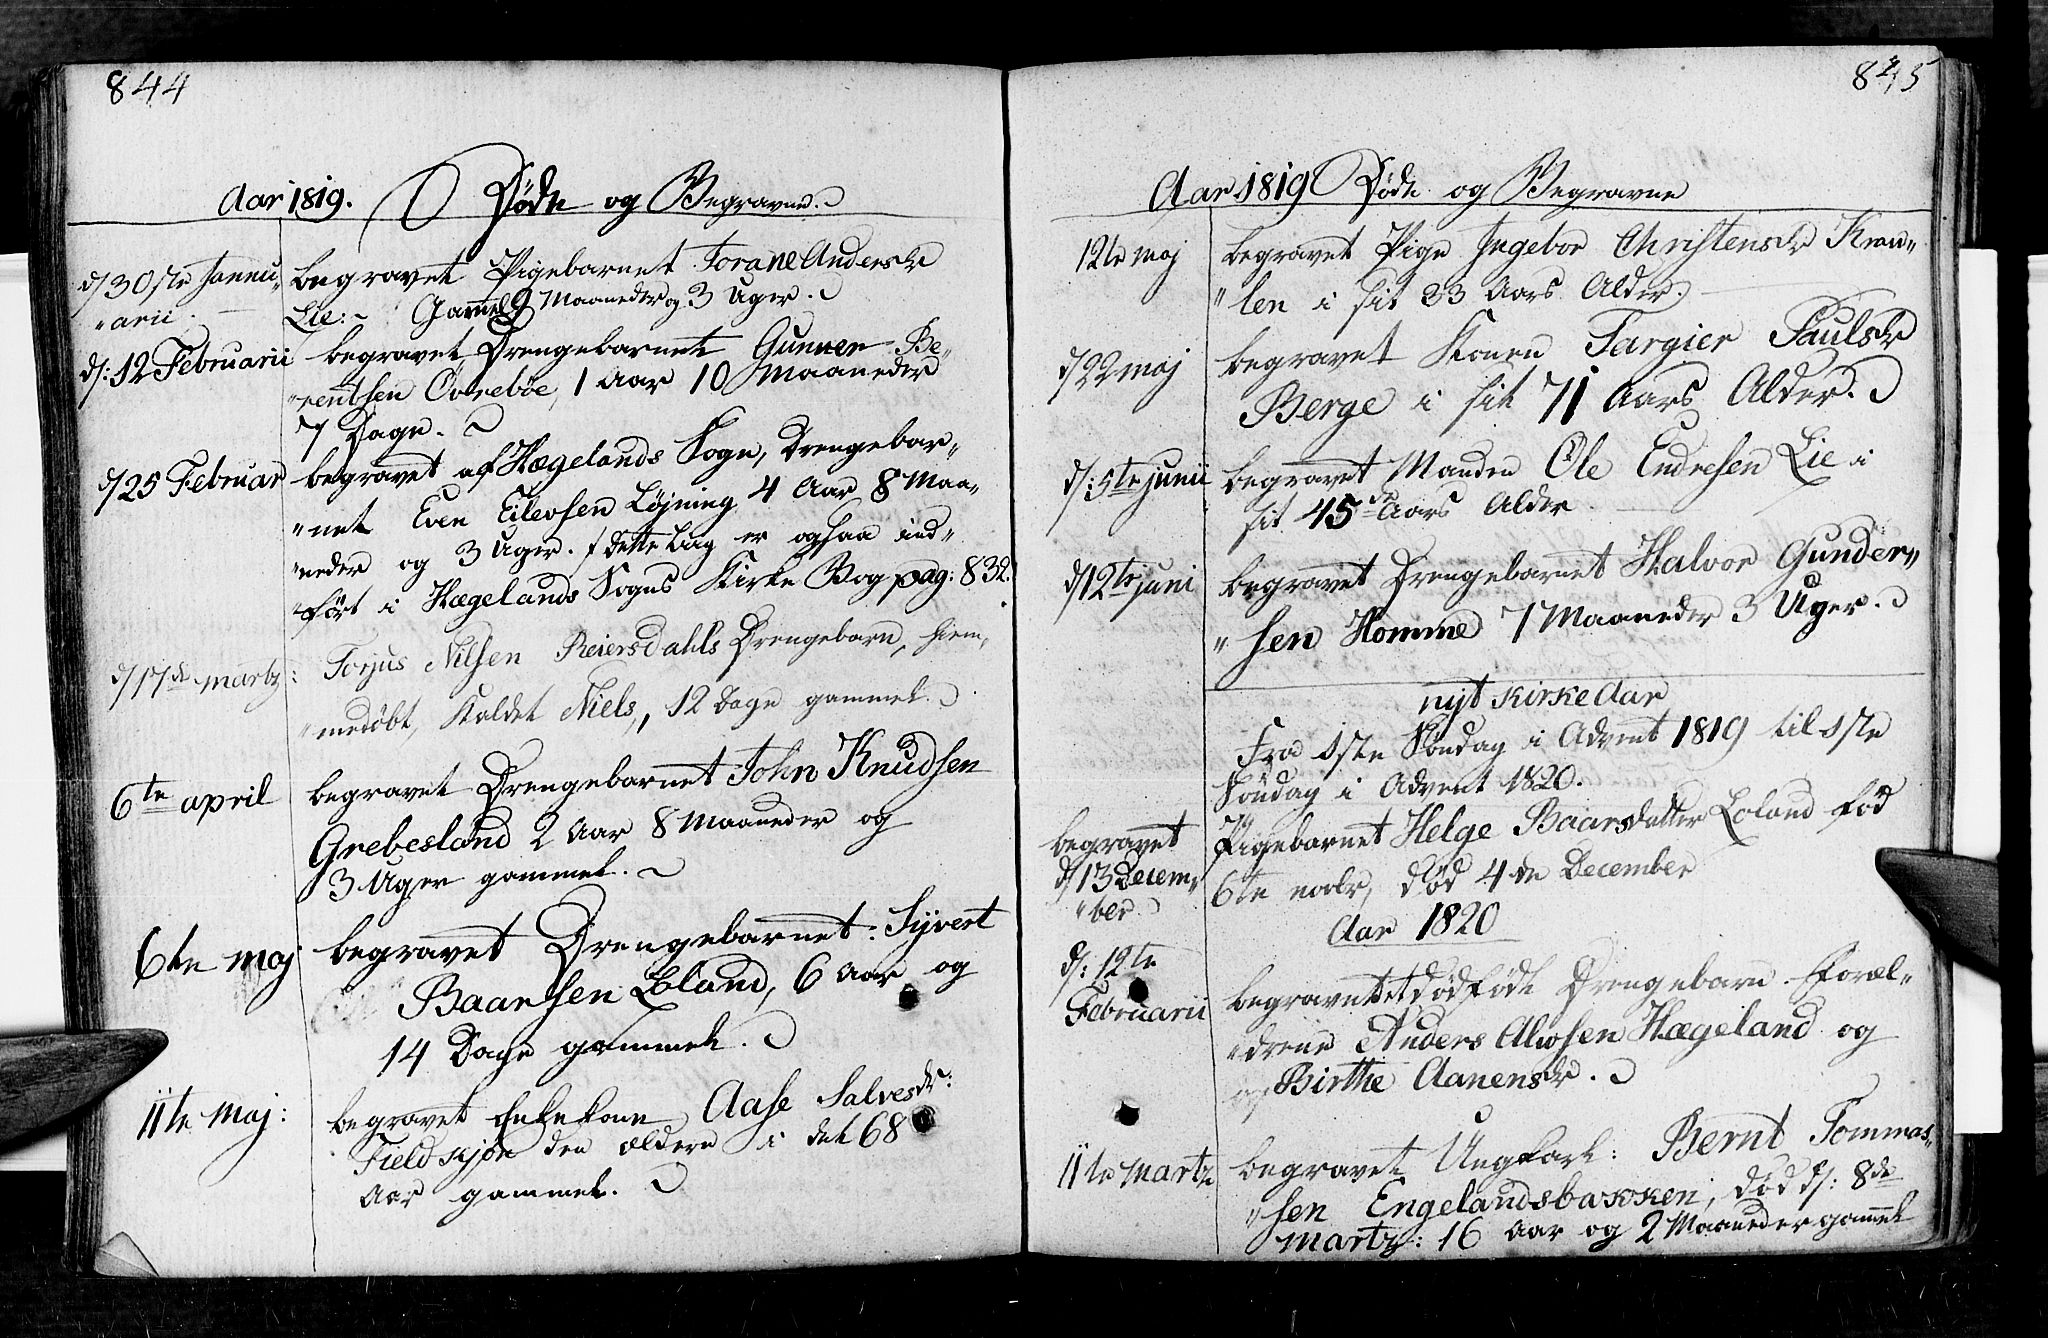 844
Aar 1819. Døde og Begravne.
d/ 30ste Janu„
„arii.
begravet Pigebarnet Torane Andersdr
Lie:~ Gamel 9 Maaneder og 3 Uger.
d/: 12 Februarii
begravet Drengebarnet Gunner Be„
„rentsen Övrebøe, 1 Aar 10 Maaneder
7 Dage.
d/ 25 Februar
begravet af Hægelands Sogn, Drengebar„
„net Even Eilevsen Løjning 4 Aar 8 Maa„
„neder og 3 Uger. / dette Liig er ogsaa ind„
„ført i Hægelands Sogns Kirke Bog pag: 832.
d/ 17de martz:
Torjus Nilsen Reiersdahls Drengebarn, hiem„
„medøbt, Kaldet Niels, 12 Dage gammel.
6te april
begravet Drengebarnet John Knudsen
Grebesland 2 Aar 8 Maaneder og
3 Uger gammel.
6te maj
begravet Drengebarnet: Syvert
Baarsen Loland, 6 Aar og
14 Dage gammel.
11te Maj:
begravet Enkekone Aase Salvesdr:
Fieldskjøe den ældere i det 68
Aar gammel.
845
Aar 1819 Døde og Begravne
12te maj
begravet Pige Ingebor Christensdr Krau„
„len i sit 23 Aars Alder.
d/ 22 maj
begravet Konen Targier Paulsdr
Berge i sit 71 Aars Alder.
d/: 5te junii
begravet Manden Ole Endresen Lie i
sit 45de Aars Alder.
d/ 12te juni
begravet Drengebarnet Halvor Gunder„
„sen Homme 7 Maaneder 3 Uger.
nyt Kirke Aar
Fra 1ste Søndag i Advent 1819 til 1ste
Søndag i Advent 1820.
begravet
d/ 13 Decem„
„ber.
Pigebarnet Helge Baarsdatter Loland fød
6te novbr, død 4de December
Aar 1820
d/: 12te
Februarii
begravet et dødfødt Drengebarn. Foræl„
„drene Anders Alwsen Hægeland og
og Birthe Aanensdr.
11te Martz
begravet Ungkarl: Bernt Tommas„
„sen Engelandsbakken, død d/: 8de
martz: 16 Aar og 2 Maaneder gammel